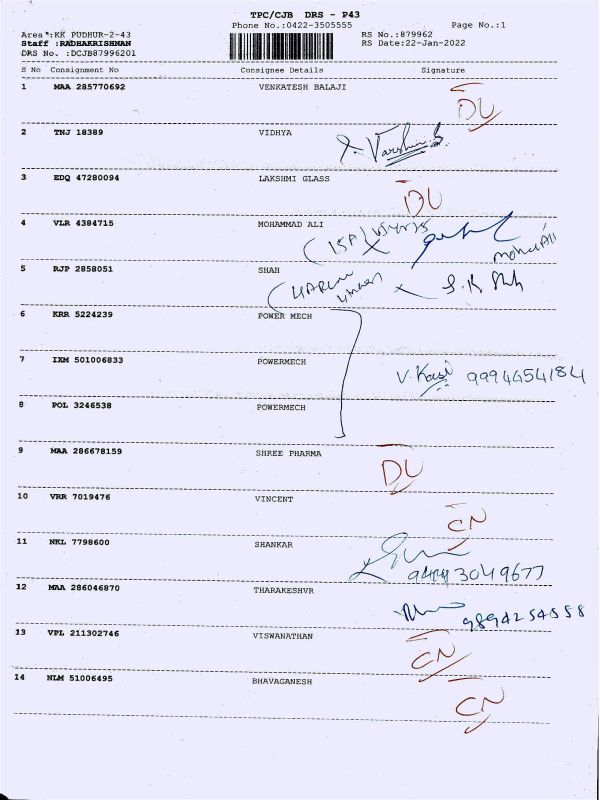 TPC/CJB DRS - P43
Phone No.:0422-3505555 Page No.:1
Area :KK PUDHUR-2-43 RS No.:879962
Staff :RADHAKRISHNAN RS Date:22-Jan-2022
DRS No. :DCJB87996201
S No Consignment No Consignee Details Signature
1 MAA 285770692 VENKATESH BALAJI DU
2 TNJ 18389 VIDHYA
3 EDQ 47280094 LAKSHMI GLASS DU
4 VLR 4384715 MOHAMMAD ALI
5 RJP 2858051 SHAH
6 KRR 5224239 POWER MECH
7 IXM 501006833 POWERMECH V. Kasi 9994454184
8 POL 3246538 POWERMECH
9 MAA 286678159 SHREE PHARMA DU
10 VRR 7019476 VINCENT CN
11 NKL 7798600 SHANKAR
12 MAA 286046870 THARAKESHVR
13 VPL 211302746 VISWANATHAN CN
14 NLM 51006495 BHAVAGANESH CN